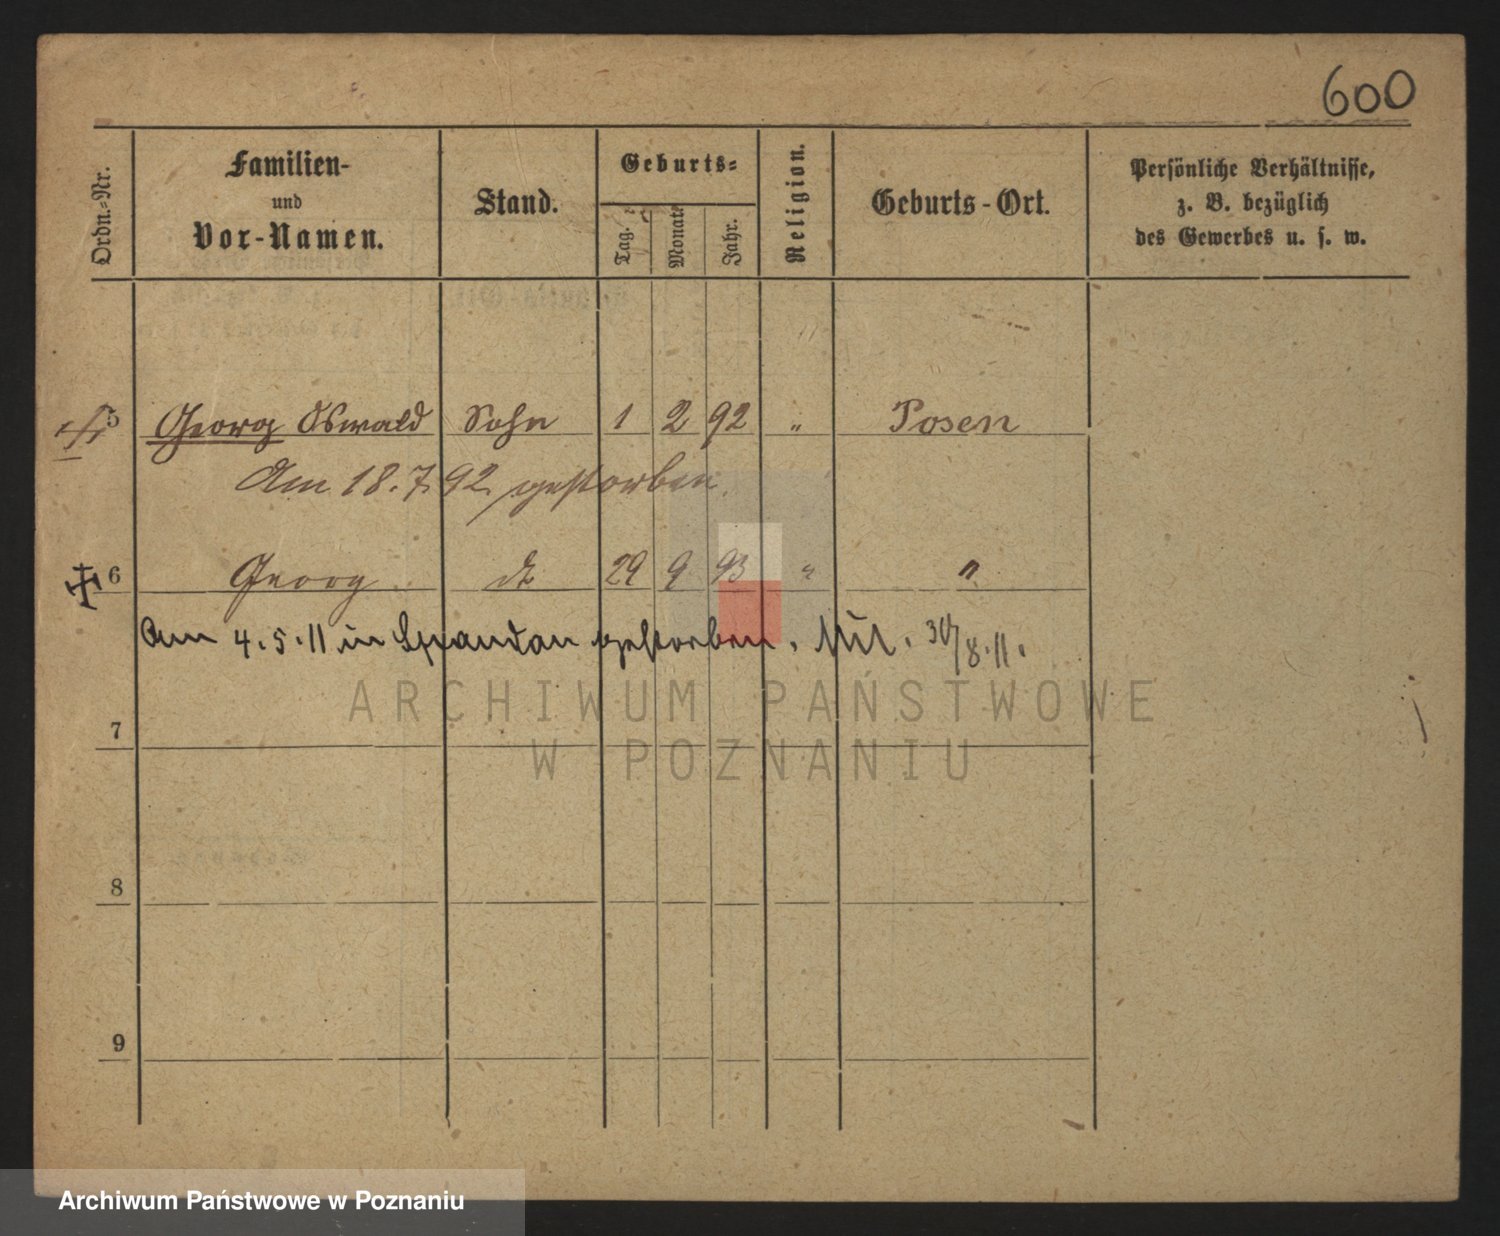 600
Ordn.-Nr.
Familien-
und
Vor-Namen.
Stand.
Geburts-
Tag.
Monat
Jahr.
Religion.
Geburts-Ort.
Persönliche Verhältnisse,
z. B. bezüglich
des Gewerbes u. s. w.
5 Georg Oswald Sohn 1 2 92 " Posen
Am 18.7.92 gestorben.
6 Georg dt 29 9 93 " "
Am 4.5.11 in Spandau gestorben. Mil. 30/8.11.
ARCHIWUM PAŃSTWOWE
W POZNANIU
7
8
9
Archiwum Państwowe w Poznaniu